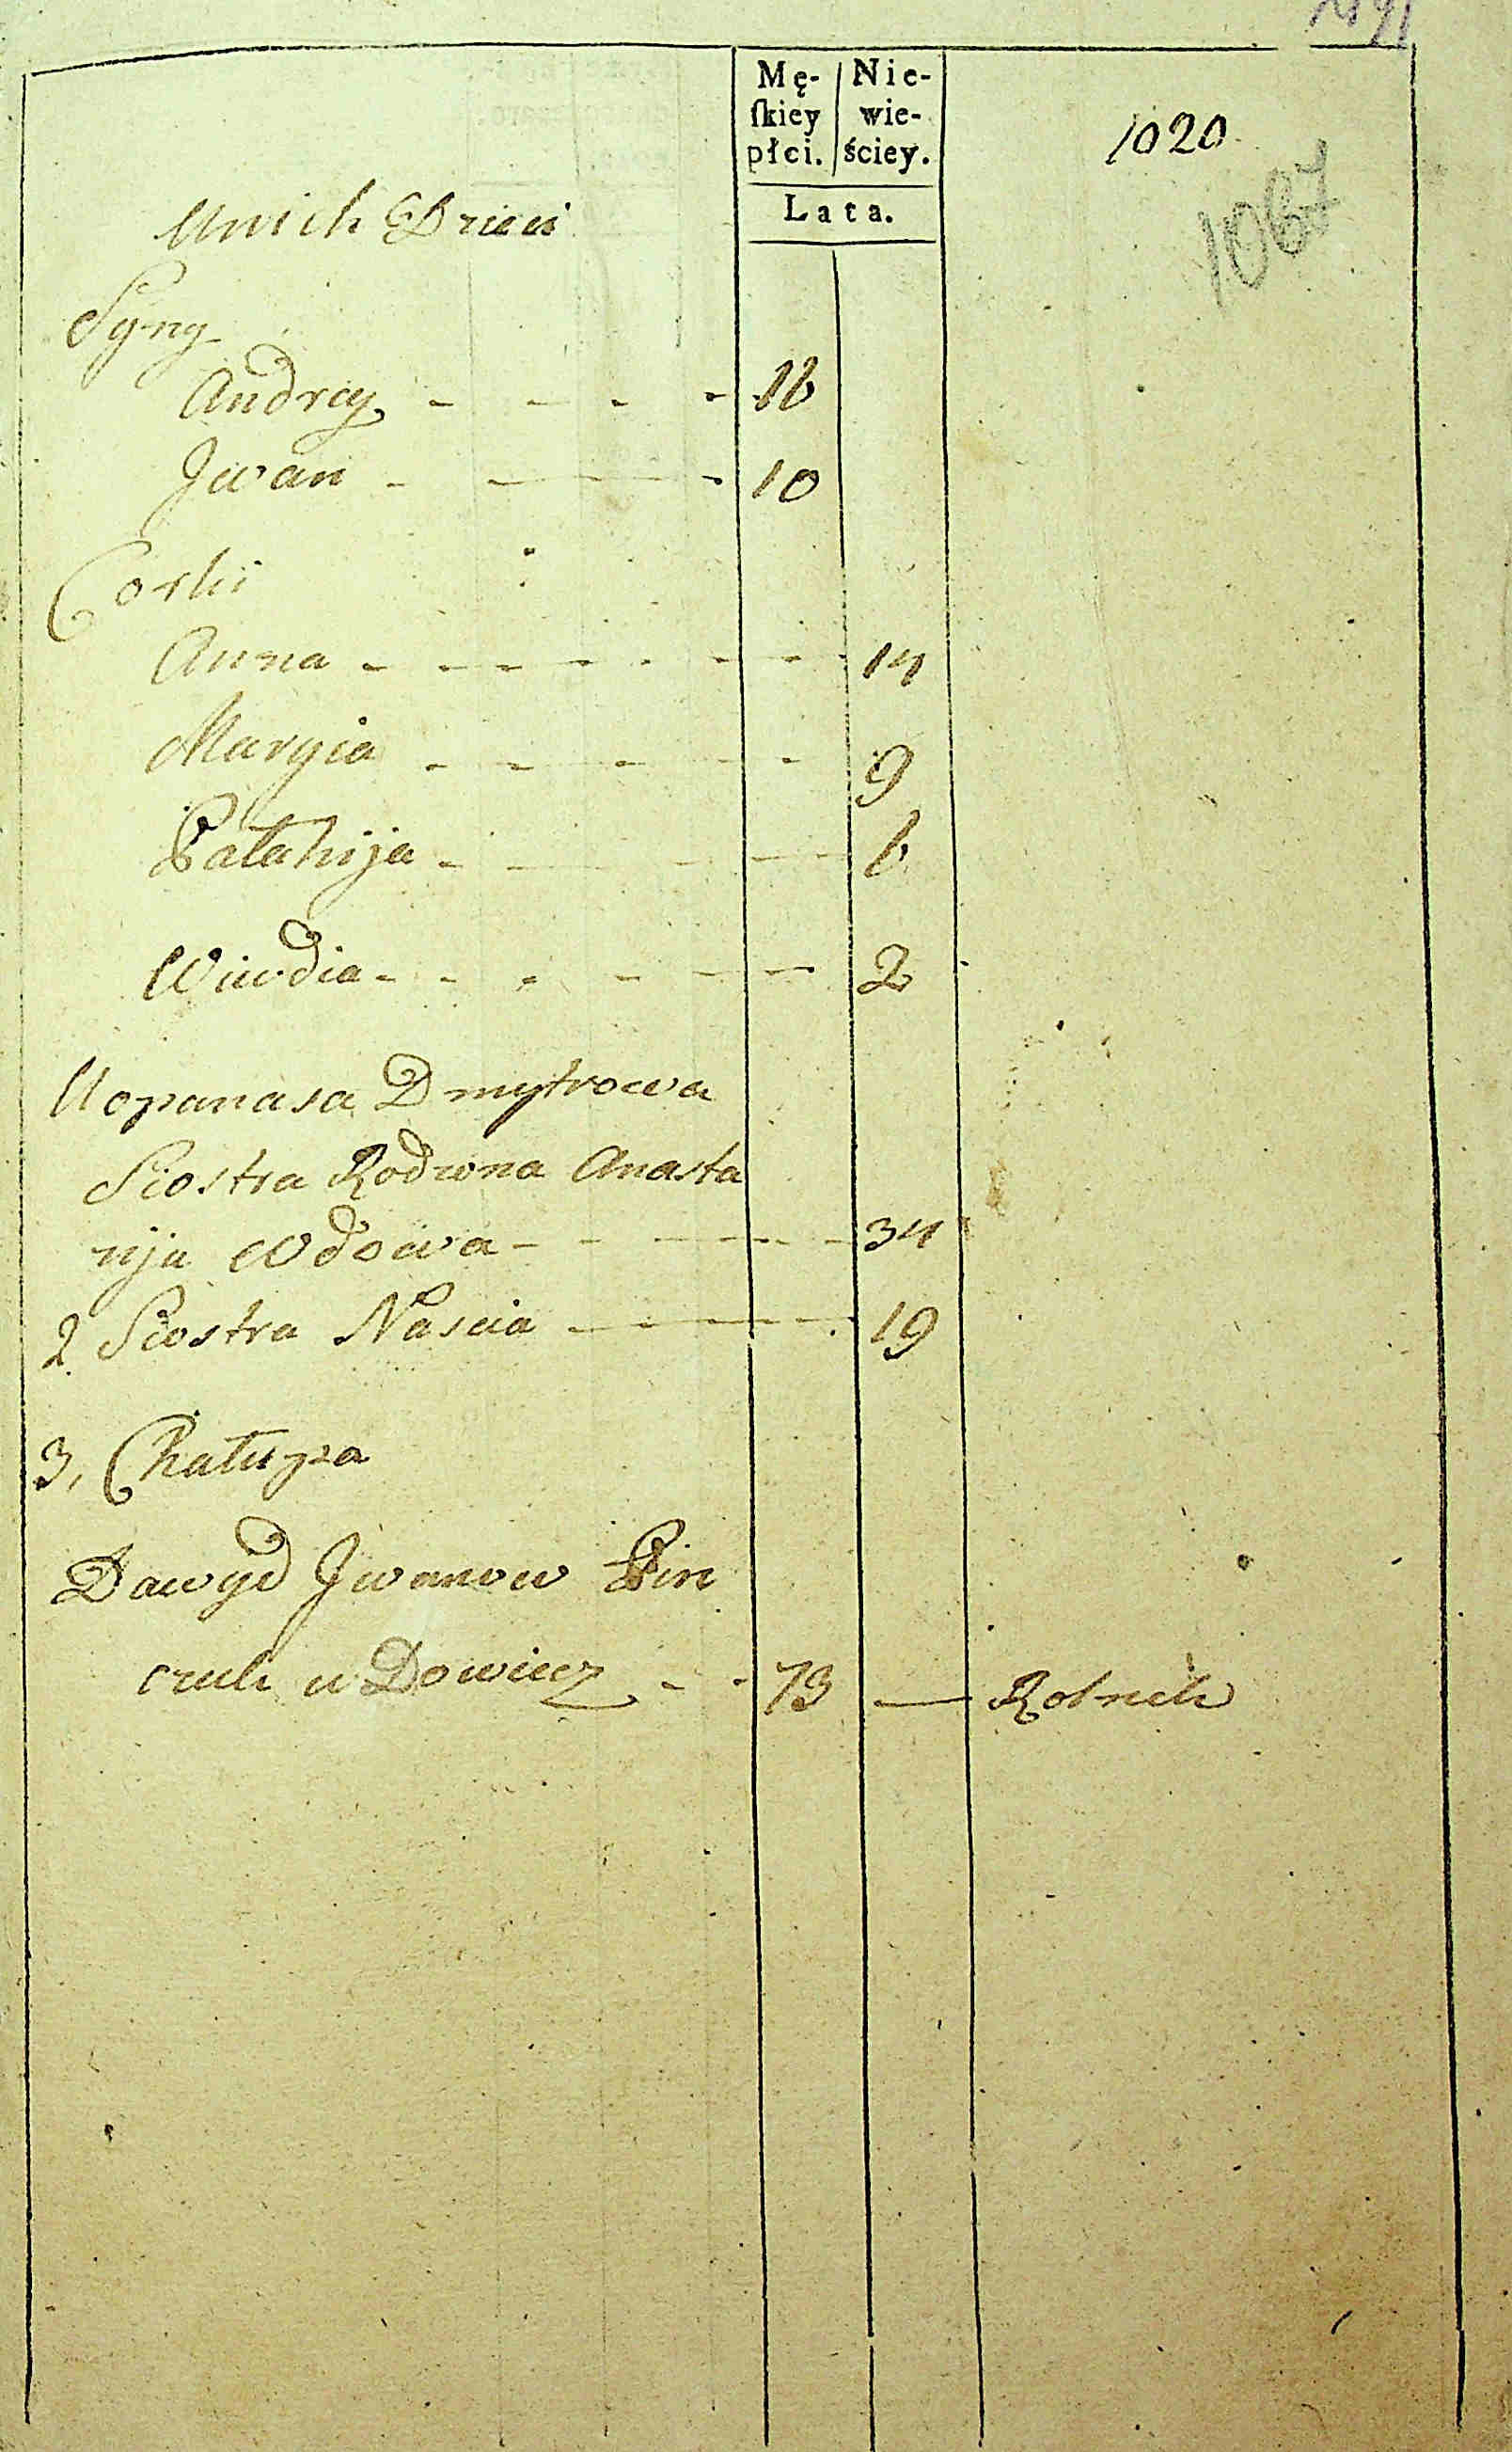 Mę-
ſkiey
płci.
Nie-
wie-
ściey.
Lata.
1020
1067
Unich Dzieci
Syny
Andrey - - - - 16
Jwan - - - 10
Corki
Anna - - - - - - - 14
Maryia - - - - - 9
Pałahija - - - - 6
Wiwdia - - - - - - 2
Uopanasa Dmytrowa
Siostra Rodzona Anasta
zija Wdowa - - - - - 34
2 Siostra Nascia - - - - 19
3, Chałupa
Dawyd Jwanow Pin
czuk wDowiec - - 73 — Rolnik